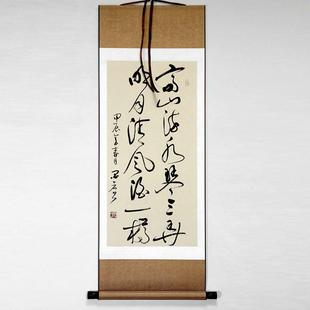 高山流水琴三弄
明月清风酒一樽
甲辰年春月